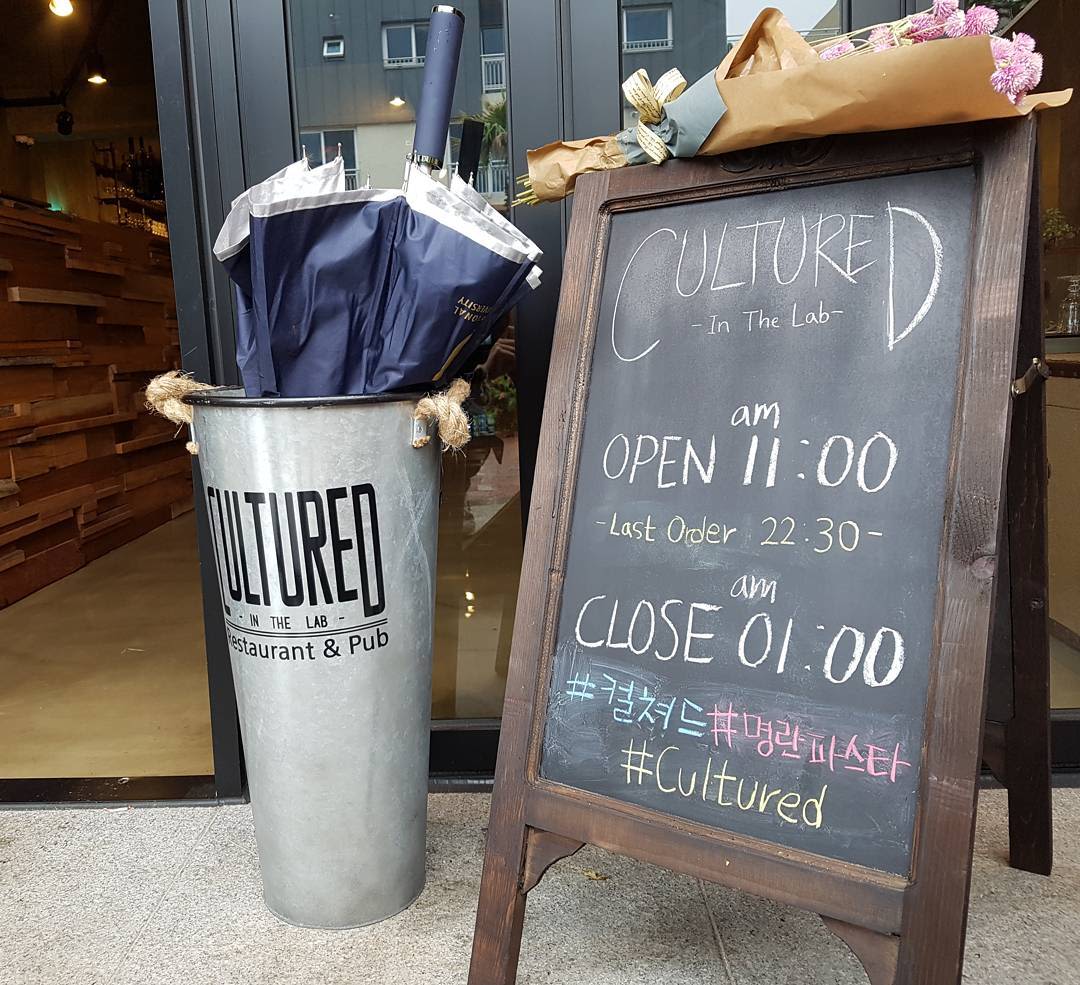 CULTURED
- IN THE LAB -
Restaurant & Pub
CULTURED
-In The Lab-
am
OPEN 11:00
-Last Order 22:30-
am
CLOSE 01:00
#컬쳐드#명란파스타
#Cultured